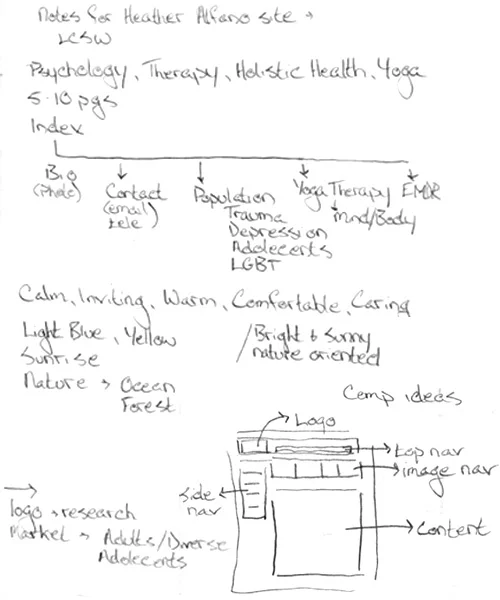 Notes for Heather Alfano site →
LCSW
Psychology, Therapy, Holistic Health, Yoga
5-10 pgs
Index
Bio
(Photo)
Contact
(email)
tele
Population
Trauma
Depression
Adolecents
LGBT
Yoga Therapy
mind/Body
EMDR
Calm, Inviting, Warm, Comfortable, Caring
Light Blue, Yellow
Sunrise
Nature → Ocean
Forest
/ Bright & Sunny
nature oriented
Comp ideas
Logo
top nav
image nav
side
nav
content
logo → research
Market → Adults/Diverse
Adolecents